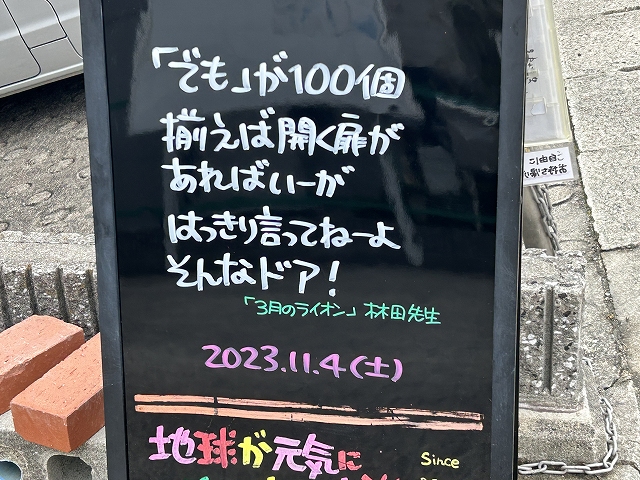 「でも」が100個
揃えば開く扉が
あればいーが
はっきり言ってねーよ
そんなドア!
「3月のライオン」林田先生
2023.11.4(土)
地球が元気に
Since
ご自由に
お持ち帰り